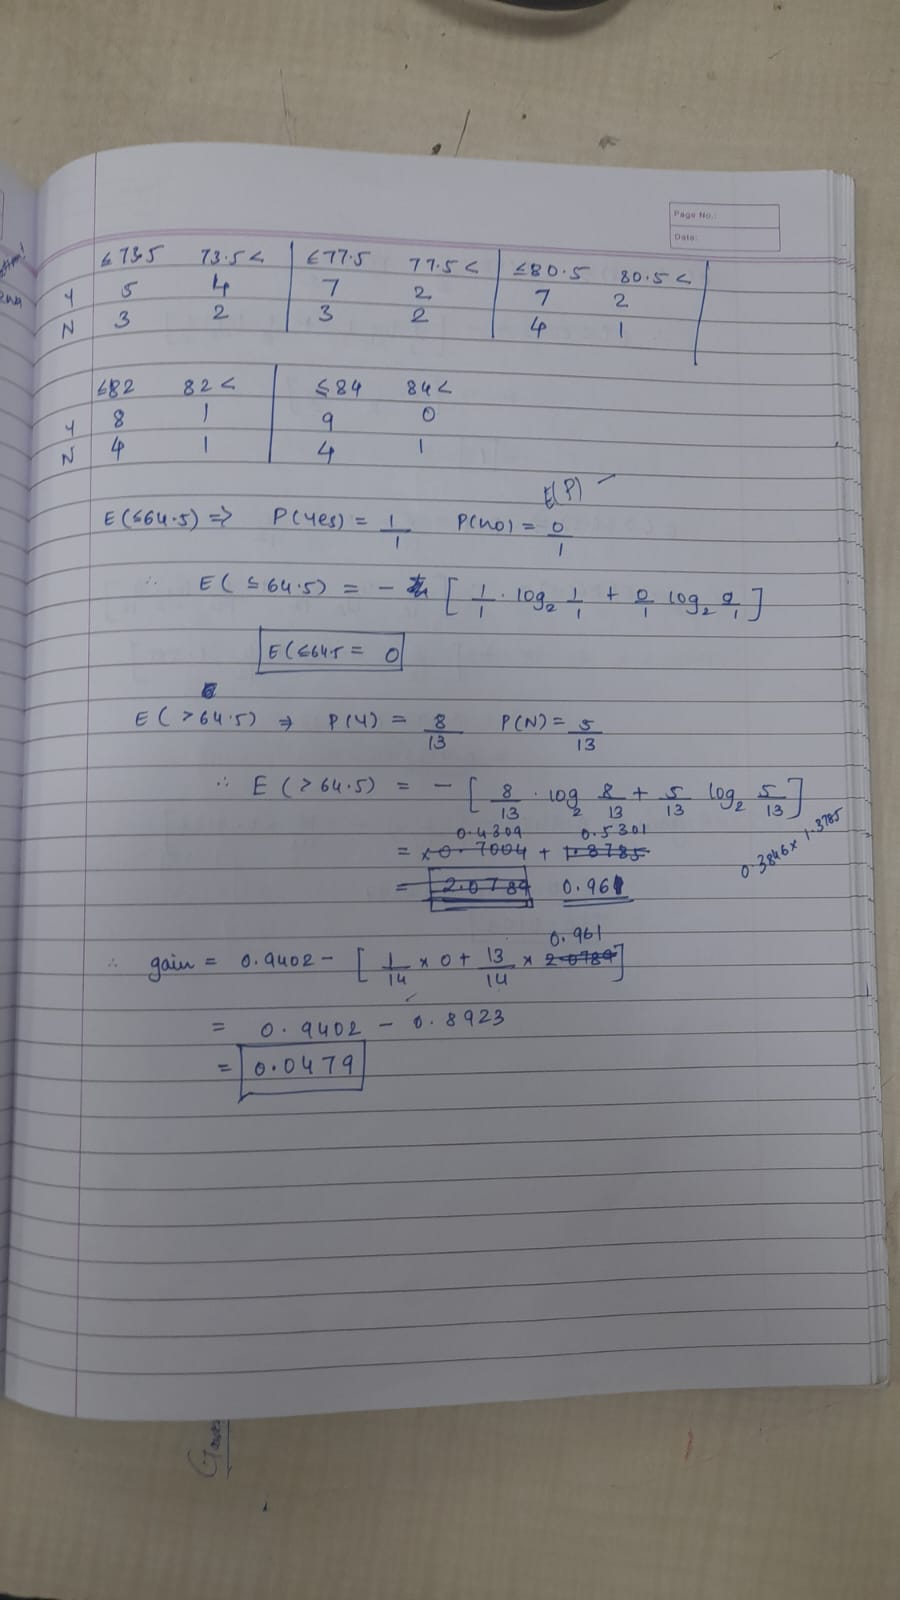 Page No.:
Date:
≤73.5 73.5< ≤77.5 77.5< ≤80.5 80.5<
Y 5 4 7 2 7 2
N 3 2 3 2 4 1
≤82 82< ≤84 84<
Y 8 1 9 0
N 4 1 4 1
E(P)
E(≤64.5) ⇒ P(Yes) = 1/1 P(NO) = 0/1
∴ E(≤64.5) = - [ 1/1 · log₂ 1/1 + 0/1 log₂ 0/1 ]
E(≤64.5 = 0
E(>64.5) ⇒ P(Y) = 8/13 P(N) = 5/13
∴ E(>64.5) = - [ 8/13 · log₂ 8/13 + 5/13 log₂ 5/13 ]
0.4309 0.5301
= 0.7004 + 1.3785
0.3846 × 1.3785
= 2.0789 0.961
0.961
∴ gain = 0.9402 - [ 1/14 × 0 + 13/14 × 2.0789 ]
= 0.9402 - 0.8923
= 0.0479